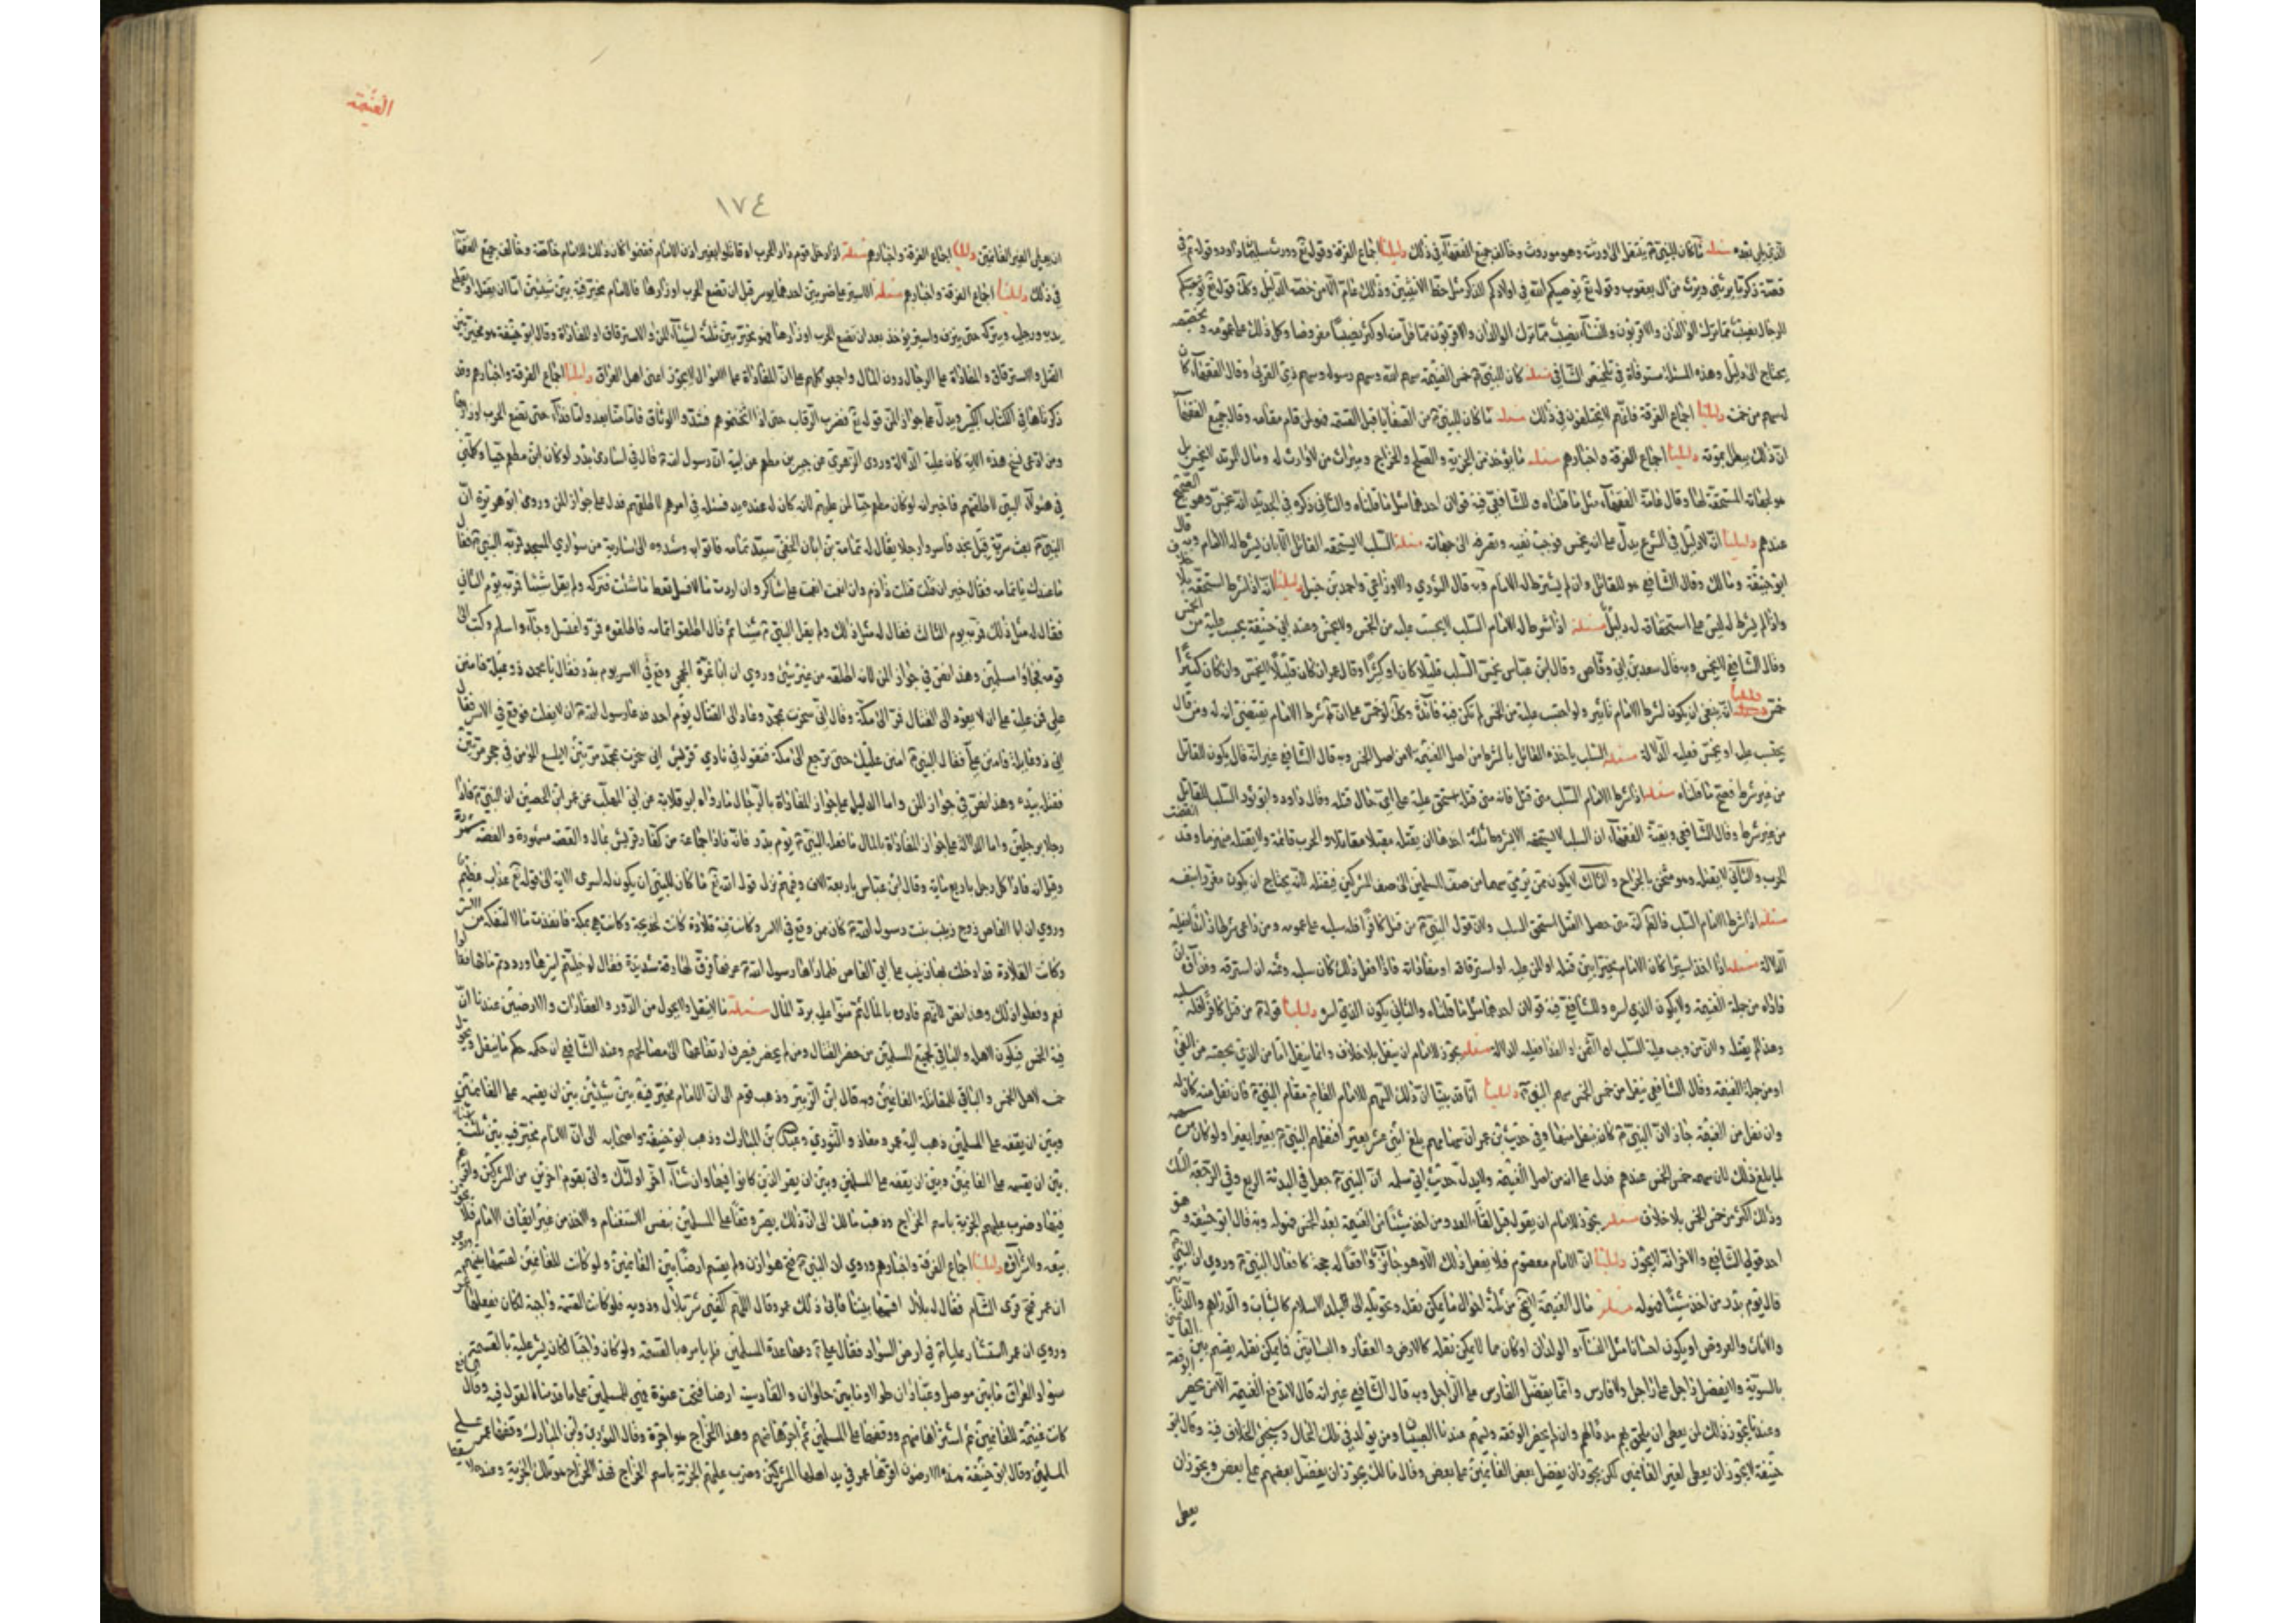 الذي يلي بعده مسئلة ما كان للنبي ينتقل الى ورثته وهو موروث وخالف جميع الفقهاء في ذلك دليلنا اجماع الفرقة وقوله تع وورث سليمان داود وقوله تع في
قصة زكريا يرثني ويرث من آل يعقوب وقوله تع يوصيكم الله في اولادكم للذكر مثل حظ الانثيين وذلك عام الا من خصه الدليل
للرجال نصيب مما ترك الوالدان والاقربون وللنساء نصيب مما ترك الوالدان والاقربون مما قل منه او كثر نصيبا مفروضا وكل ذلك على عمومه
يحتاج الى دليل وهذه المسئلة مستوفاة في تلخيص الشافي مسئلة كان للنبي من خمس الغنيمة سهم الله وسهم رسوله وسهم ذي القربى وقال الفقهاء كان
له سهم من خمسة دليلنا اجماع الفرقة فانهم لا يختلفون في ذلك مسئلة ما كان للنبي من الصفايا قبل القسمة فهو لمن قام مقامه وقال جميع الفقهاء
ان ذلك يبطل بموته دليلنا اجماع الفرقة واخبارهم مسئلة ما يؤخذ من الجزية والصلح والخراج وميراث من لا وارث له ومال المرتد لا يخمس بل
هو لجهاته المستحقة لها وقال عامة الفقهاء مثل ما قلناه وللشافعي فيه قولان احدهما مثل ما قلناه والثاني ذكره في الجديد انه يخمس وهو الصحيح
عندهم دليلنا انه لا دليل في الشرع يدل على انه يخمس فوجب نفيه وبصرفه الى جهاته مسئلة السلب لا يستحقه القاتل الا بان يشرط له الامام وبه قال
ابو حنيفة ومالك وقال الشافعي هو للقاتل وان لم يشترط له الامام وبه قال الثوري والاوزاعي واحمد بن حنبل دليلنا انه اذا شرط استحقه بلا خلاف
واذا لم يشرط له ليس على استحقاقه له دليل مسئلة اذا شرط له الامام السلب لا يحتسب عليه من الخمس ولا يخمس وعند ابي حنيفة يحتسب عليه من الخمس
وقال الشافعي لا يخمس وبه قال سعد بن ابي وقاص وقال ابن عباس يخمس السلب قليلا كان او كثيرا وقال عمر ان كان قليلا لا يخمس وان كان كثيرا
خمس دليلنا انه ينبغي ان يكون لشرط الامام تاثير ولو احتسب عليه من الخمس لم تكن فيه فائدة وكذلك لو خمس على انه شرط الامام يقتضي انه له ومن قال
يحتسب عليه او يخمس فعليه الدلالة مسئلة السلب ياخذه القاتل بالشرط من اصل الغنيمة لا من اصل الخمس وبه قال الشافعي غير انه قال يكون للقاتل
من غير شرط فصح ما قلناه مسئلة اذا شرط الامام السلب متى قتل فانه متى قتله استحق عليه على اي حال قتله وقال داود وابو ثور السلب للقاتل
من غير شرط وقال الشافعي وبقية الفقهاء ان السلب لا يستحقه الا بشروط ثلثة احدها ان يقتله مقبلا مقاتلا والحرب قائمة ولا يقتله منهزما وقد انقضت
الحرب والثاني لا يقتله وهو مثخن بالجراح والثالث لا يكون ممن يرمي سهما من صف المسلمين الى صف المشركين فيقتله لانه يحتاج ان يكون مغررا بنفسه
مسئلة اذا شرط الامام السلب فالحكم انه متى حصل القتل استحق السلب ولان قول النبي من قتل كافرا فله سلبه على عمومه ومن ادعى شرطا زائدا فعليه
الدلالة مسئلة اذا اخذ اسيرا كان الامام مخيرا بين قتله او المن عليه او استرقاقه او مفاداته فاذا فعل ذلك كان سلبه وثمنه ان استرقه وفداؤه ان
فاداه من جملة الغنيمة ولا يكون للذي اسره وللشافعي فيه قولان احدهما مثل ما قلناه والثاني يكون للذي اسره دليلنا قوله من قتل كافرا فله سلبه
وهذا لم يقتله ولان من وجب عليه السلب او الثمن او الفداء فعليه الدلالة مسئلة يجوز للامام ان ينفل بلا خلاف وانما ينفل اما من الذي يخصه من الفيء
او من جملة الغنيمة وقال الشافعي ينفل من خمس الخمس سهم النبي دليلنا انا قد بينا ان ذلك السهم للامام القائم مقام النبي فان نفل منه كان له
وان نفل من الغنيمة جاز لان النبي كان ينفل منها وفي حديث بن عمر ان سهامهم بلغ اثنى عشر بعيرا فنفلهم النبي بعيرا بعيرا ولو كان من سهمه
لما بلغ ذلك لان سهمه خمس الخمس عندهم فدل على انه من اصل الغنيمة واليه يدل حديث ابي سلمه ان النبي جعل في البدئة الربع وفي الرجعة الثلث
وذلك اكثر من خمس الخمس بلا خلاف مسئلة يجوز للامام ان يقول قبل لقاء العدو من اخذ شيئا من الغنيمة بعد الخمس فهو له وبه قال ابو حنيفة وهو
احد قولي الشافعي والاخر انه لا يجوز دليلنا ان الامام معصوم فلا يفعل ذلك الا وهو جائز وافعاله حجة كافعال النبي وروي ان النبي
قال يوم بدر من اخذ شيئا فهو له مسئلة مال الغنيمة لا يخ من ثلثة احوال ما يمكن نقله وتحويله الى بلد الاسلام كالثياب والدراهم والدنانير
والاثاث والعروض او يكون اجسادا مثل النساء والولدان او كان مما لا يمكن نقله كالارض والعقار والبساتين فما يمكن نقله يقسم بين الغانمين
بالسوية ولا يفضل راجل على راجل ولا فارس وانما يفضل الفارس على الراجل وبه قال الشافعي غير انه قال لا تدفع الغنيمة الا لمن يحضر الوقعة
وعندنا يجوز ذلك لمن يعطى ان يلحق بهم مددا لهم وان لم يحضر الوقعة ويسهم عندنا الصبيان ومن يولد في تلك الحال وسيجيء الخلاف فيه وقال ابو
حنيفة لا يجوز ان يعطى لغير الغانمين لكن يجوز ان يفضل بعض الغانمين على بعض وقال مالك يجوز ان يفضل بعضهم على بعض ويجوز ان
يعطى
الغنيمة
١٧٤
ان يعطي لغير الغانمين دليلنا اجماع الفرقة واخبارهم مسئلة اذا دخل قوم دار الحرب او قاتلوا بغير اذن الامام فغنموا كان ذلك للامام خاصة وخالف جميع الفقهاء
في ذلك دليلنا اجماع الفرقة واخبارهم مسئلة الاسير على ضربين احدهما يوسر قبل ان تضع الحرب اوزارها فالامام مخير فيه بين شيئين اما ان يقتله او يقطع
يديه ورجليه ويتركه حتى ينزف واسير يؤخذ بعد ان تضع الحرب اوزارها فهو مخير بين ثلثة اشياء المن والاسترقاق او المفاداة وقال ابو حنيفة هو مخير بين
القتل والاسترقاق والمفاداة على الرجال دون المال واجمعوا كلهم على ان المفاداة على الاموال لا يجوز اعني اهل العراق دليلنا اجماع الفرقة واخبارهم وقد
ذكرناها في الكتاب الكبير ويدل على جواز المن قوله تع فضرب الرقاب حتى اذا اثخنتموهم فشدوا الوثاق فاما منا بعد واما فداء حتى تضع الحرب اوزارها
ومن ادعى نسخ هذه الاية كان عليه الدلالة وروى الزهري عن جبير بن مطعم عن ابيه ان رسول الله قال في اسارى بدر لو كان ابن مطعم حيا وكلمني
في هؤلاء النتنى لاطلقتهم فاخبر انه لو كان مطعم حيا لمن عليهم لانه كان له عنده يد فسئله في امرهم لاطلقهم فدل على جواز المن وروى ابو هريرة ان
النبي بعث سرية قبل نجد فاسروا رجلا يقال له ثمامة بن اثال الحنفي سيد يمامه فاتوا به وشدوه الى سارية من سواري المسجد فمر به النبي فقال
ما عندك يا ثمامه فقال خير ان قتلت قتلت ذا دم وان انعمت انعمت على شاكر وان اردت مالا فسل تعط ما شئت فتركه ولم يقل شيئا فمر به يوم الثاني
فقال له مثل ذلك فمر به يوم الثالث فقال له مثل ذلك ولم يقل النبي شيئا ثم قال اطلقوا ثمامه فاطلقوه فمر واغتسل وجاء واسلم وكتب الى
قومه فجاؤا مسلمين وهذا نص في جواز المن لانه اطلقه من غير شيئ وروي ان ابا غرة الجمحي وقع في الاسر يوم بدر فقال يا محمد ذو عيلة فامنن
علي فمن عليه على ان لا يعود الى القتال فمر الى مكة وقال اني سخرت بمحمد وعاد الى القتال يوم احد فدعا رسول الله ان لا يفلت فوقع في الاسر فقال
اني ذو عيلة فامنن علي فقال النبي امنن عليك حتى ترجع الى مكة فتقول في نادي قريش اني سخرت بمحمد مرتين لا يلسع المؤمن في حجر مرتين
فقتله بيده وهذا نص في جواز المن واما الدليل على جواز المفاداة بالرجال ما رواه ابو قلابة عن ابي المهلب عن عمران الحصين ان النبي فادى
رجلا برجلين واما الدلالة على جواز المفاداة بالمال ما فعله النبي يوم بدر فانه فادى جماعة من كفار قريش بمال والقصة مشهورة
وقيل انه فادى كل رجل باربع مائة وقال ابن عباس باربعة الاف وفيهم نزل قوله تع ما كان للنبي ان يكون له اسرى الاية الى قوله تع عذاب عظيم
وروي ان ابا العاص زوج زينب بنت رسول الله كان ممن وقع في الاسر وكانت فيه قلادة كانت لخديجة وكانت هي بمكة فانفذت مالا لتفكه من الاسر
وكانت القلادة قد ادخلت بها زينب على ابي العاص فلما راها رسول الله عرفها فرق لها رقة شديدة فقال لو خليتم اسيرها ورددتم مالها قالوا
نعم وفعلوا ذلك وهذا نص لانهم فادوه بالمال ثم منوا عليه برد المال مسئلة ما لا ينقل ولا يحول من الدور والعقارات والارضين عندنا ان
فيه الخمس فيكون لاهله والباقي لجميع المسلمين من حضر القتال ومن لم يحضر فيصرف ارتفاعها الى مصالحهم وعند الشافعي ان حكمه حكم ما ينقل ويحول
خمسه لاهل الخمس والباقي للمقاتلة الغانمين وبه قال ابن الزبير وذهب قوم الى ان الامام مخير فيه بين شيئين بين ان يقسمه على الغانمين
وبين ان يقفه على المسلمين ذهب اليه عمر ومعاذ والثوري وعبد الله بن المبارك وذهب ابو حنيفة واصحابه الى ان الامام مخير فيه بين ثلثة اشياء
بين ان يقسمه على الغانمين وبين ان يقفه على المسلمين وبين ان يقر الذين كانوا فيها وان شاء اخر اولئك واتى بقوم اخرين من المشركين
فيها وضرب عليهم الجزية باسم الخراج وذهب مالك الى ان ذلك يصير وقفا على المسلمين بنفس الاستغنام والاخذ من غير ايقاف الامام فلا يجوز
بيعه ولا شراؤه دليلنا اجماع الفرقة واخبارهم وروي ان النبي فتح هوازن ولم يقسم ارضها بين الغانمين ولو كانت للغانمين لقسمها بينهم وروي
ان عمر فتح قرى الشام فقال له بلال اقسمها بيننا فابى ذلك عمر وقال اللهم اكفني شر بلال وذويه فلو كانت القسمة واجبة لكان يفعلها عمر
وروي ان عمر استشار عليا في ارض السواد فقال علي دعها عدة للمسلمين فلم يامره بالقسمة ولو كان واجبا لكان يشير عليه بالقسمة مسئلة
سواد العراق ما بين موصل وعبادان طولا وما بين حلوان والقادسية عرضا فتحت عنوة فهي للمسلمين على ما قدمنا القول فيه وقال الشافعي
كانت غنيمة للغانمين ثم اشتراها منهم ووقفها على المسلمين ثم اجرها منهم وهذا الخراج هو اجرة وقال الثوري وابن المبارك وقفها عمر على
المسلمين وقال ابو حنيفة هذه الارضون اقرها عمر في يد اهلها المشركين وضرب عليهم الجزية باسم الخراج فهذا الخراج هو تلك الجزية وعنده لا